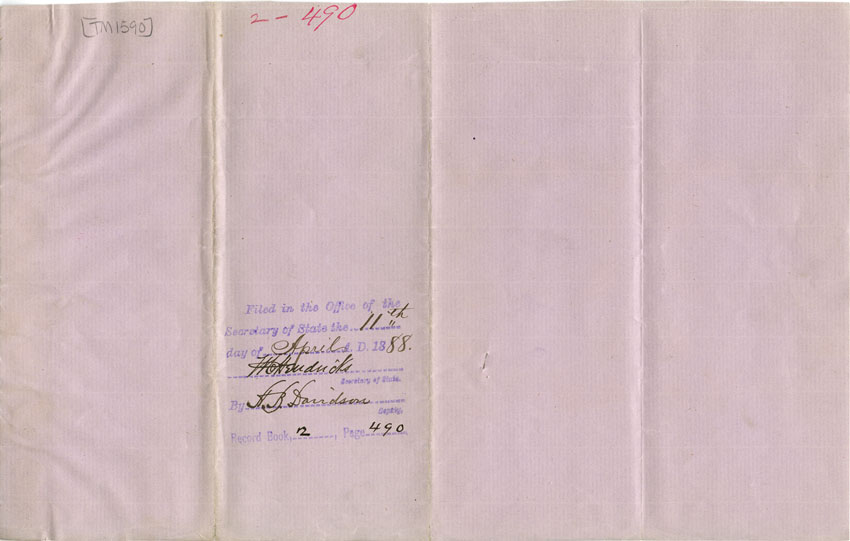 [TM1590]
2 - 490
Filed in the Office of the
Secretary of State the 11th
day of April A. D. 1888.
W. C. Hendricks
Secretary of State.
By A. B. Davidson
Deputy.
Record Book, 2, Page 490